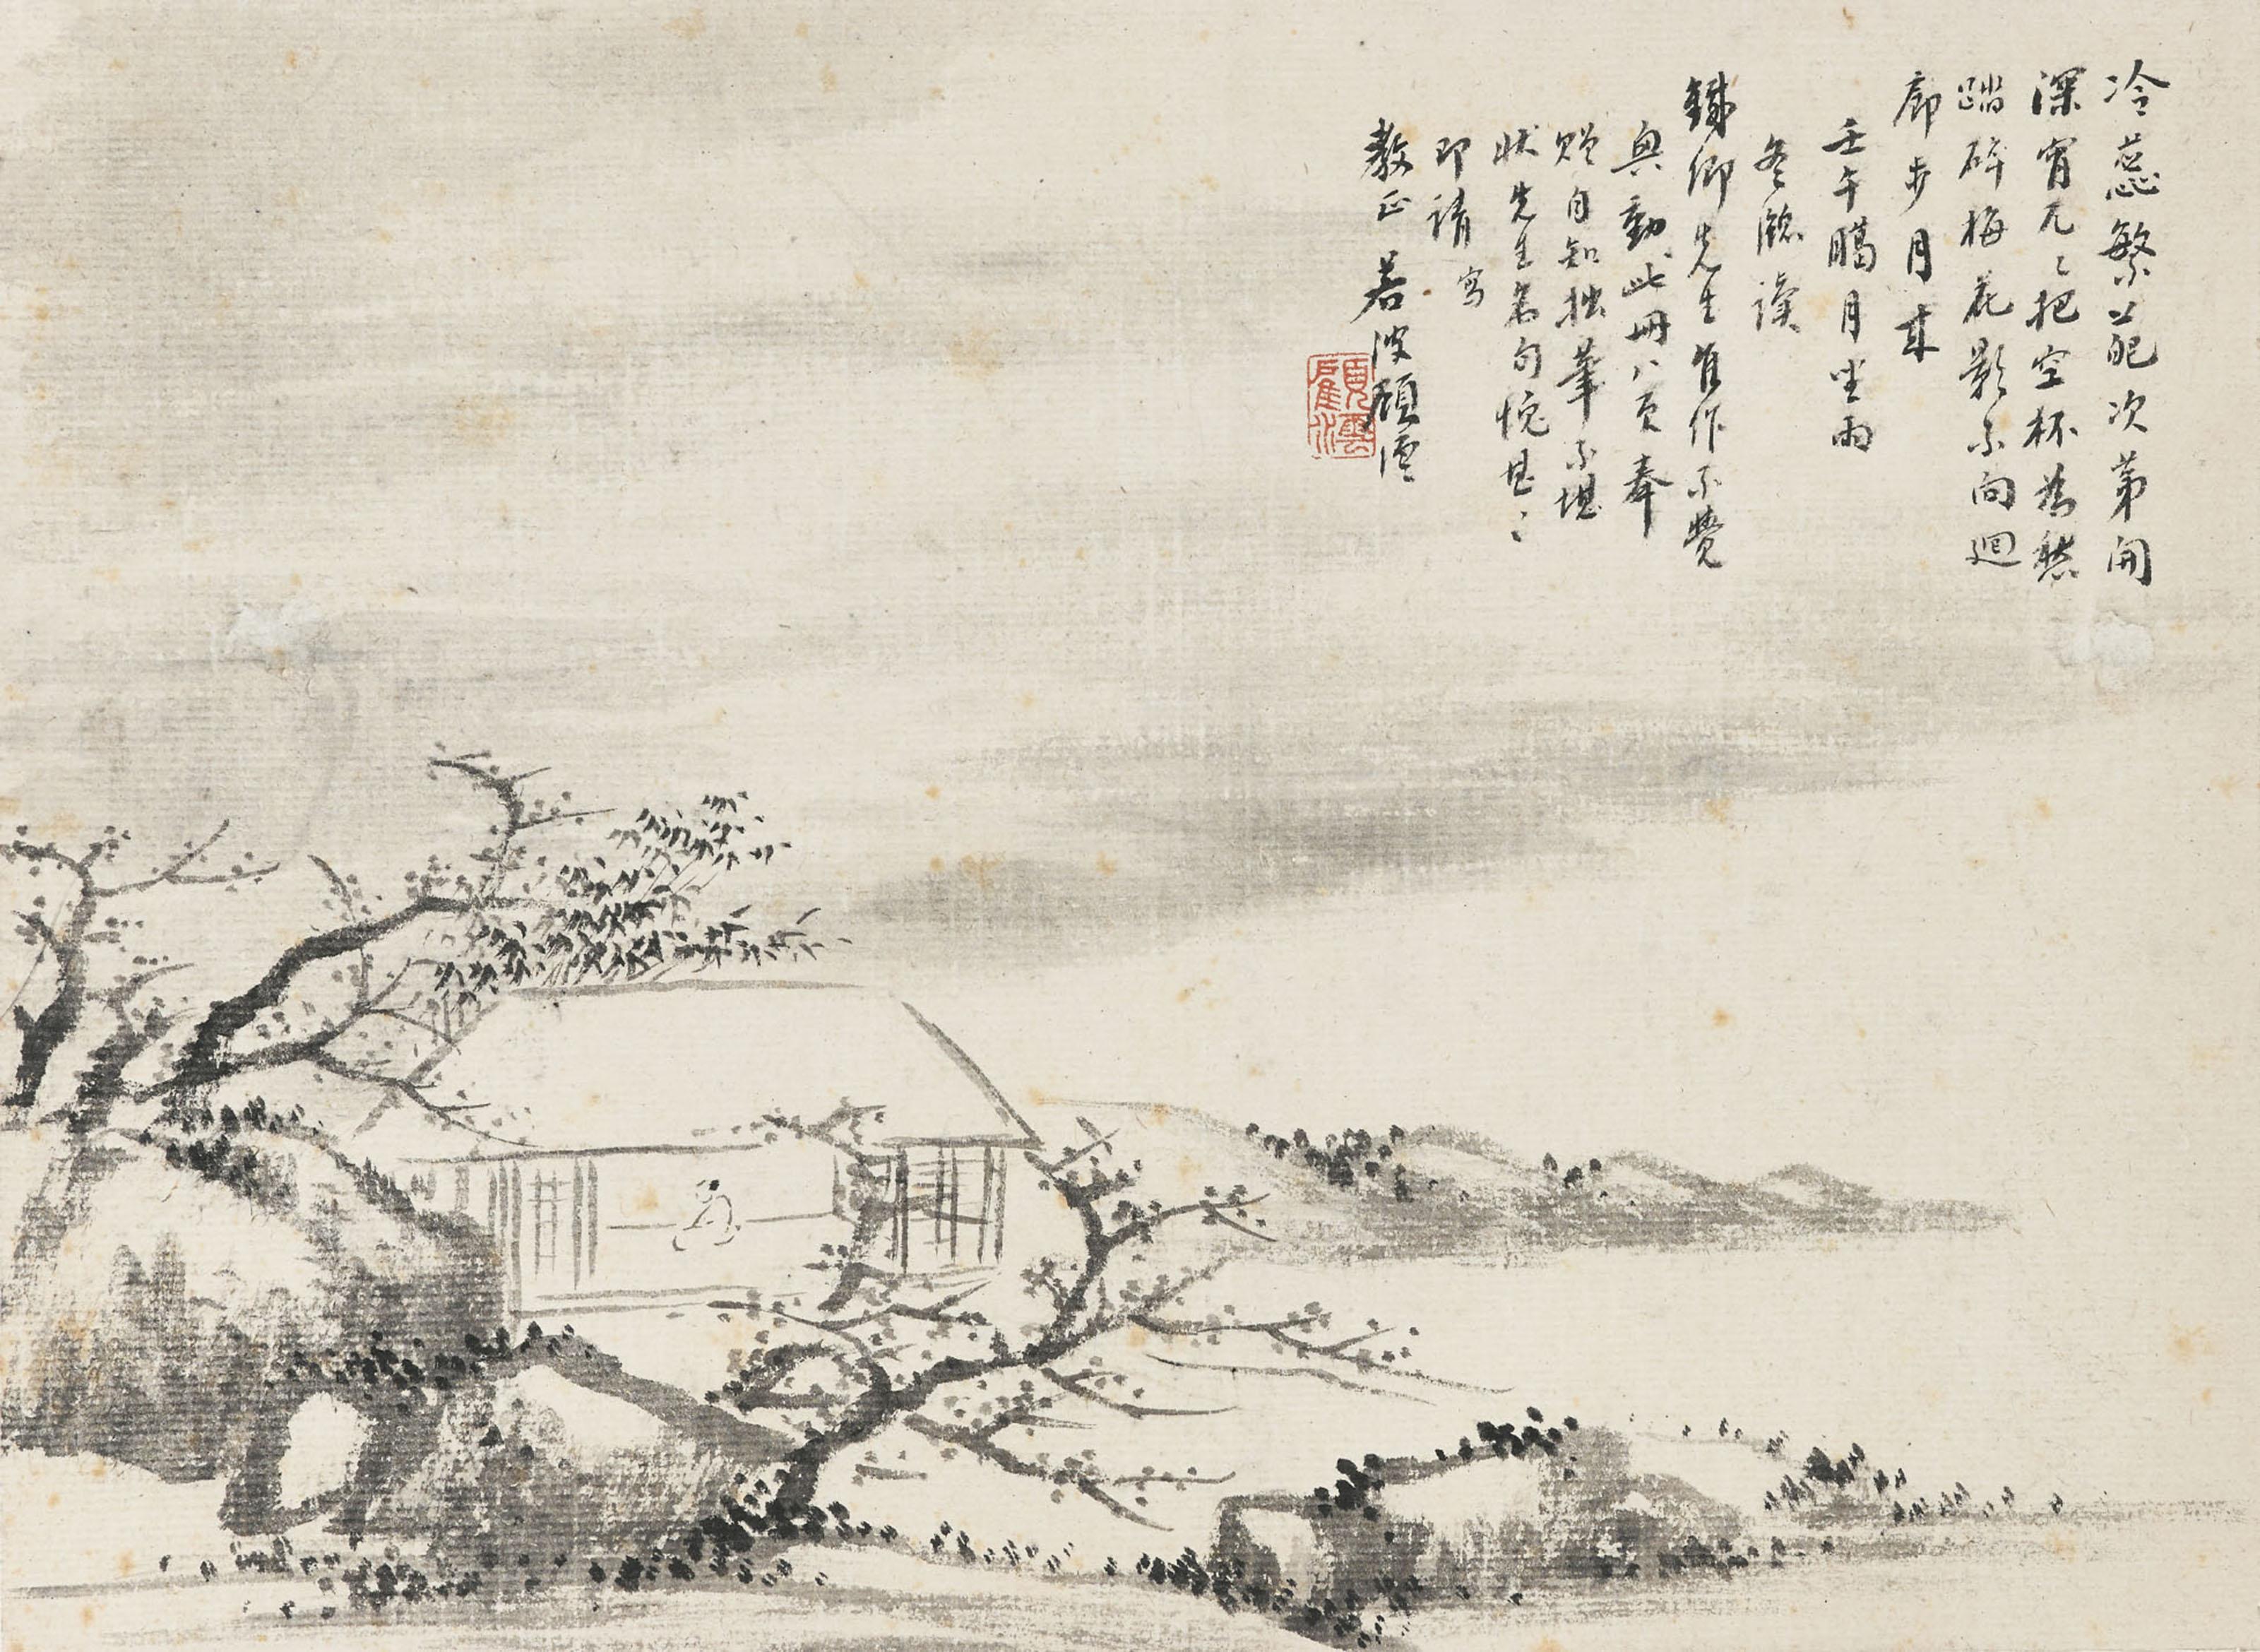 冷蕊繁葩次第開
深宵兀〻把空杯為愁
踏碎梅花影不向迴
廊步月來
壬午臈月坐雨
冬牕讀
鐵卿先生舊作不覺
興動此冊八頁奉
贈自知拙筆不堪
狀先生名句愧甚〻
即請
教正 若波顧澐
顧澐